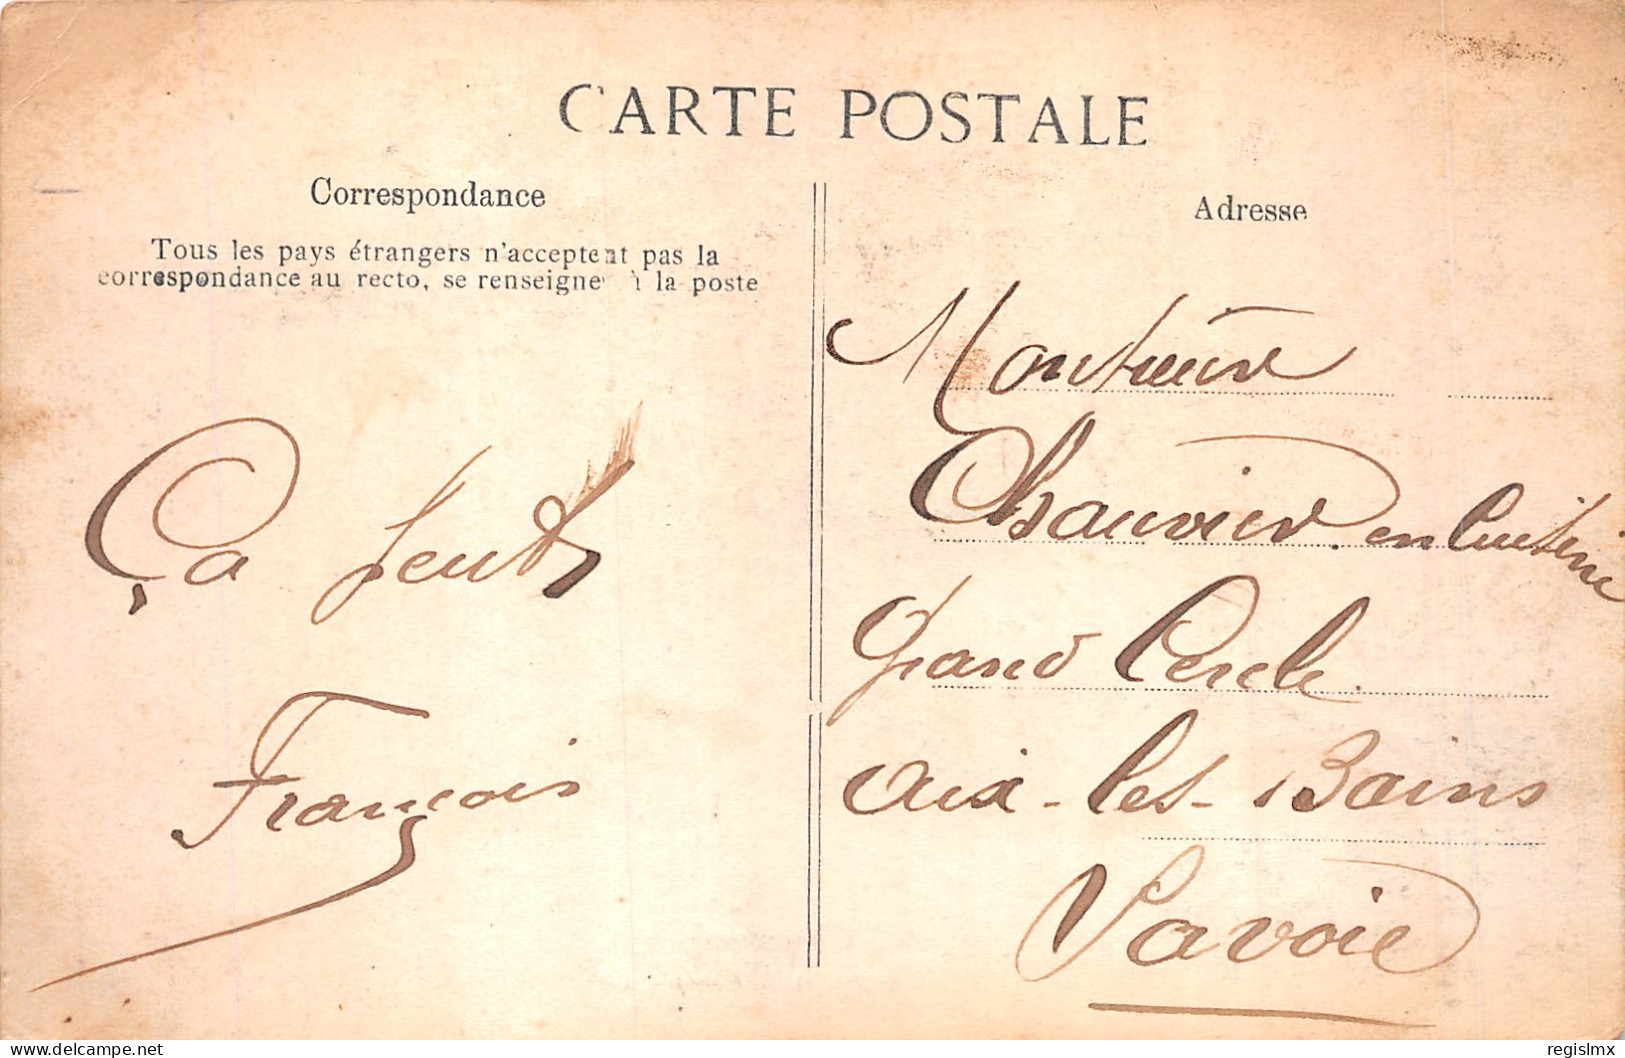 CARTE POSTALE
Correspondance
Tous les pays étrangers n'acceptent pas la
correspondance au recto, se renseigner à la poste
Ça
François
Adresse
Monsieur
Chauvier en
Grand Cercle
Aix-les-Bains
Savoie
delcampe.net
regislmx